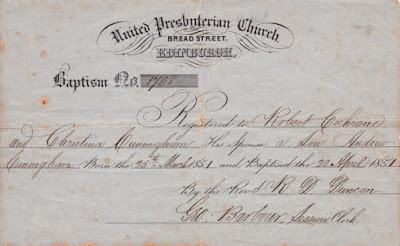 United Presbyterian Church
BREAD STREET.
EDINBURGH.
Baptism No 1768
Registered to Robert Cochrane
and Christina Cuningham His Spouse a Son Andrew
Cuningham Born the 25th March 1851 and Baptised the 20 April 1851
By the Revd R D Duncan
Geo. Barbour, Session Clerk